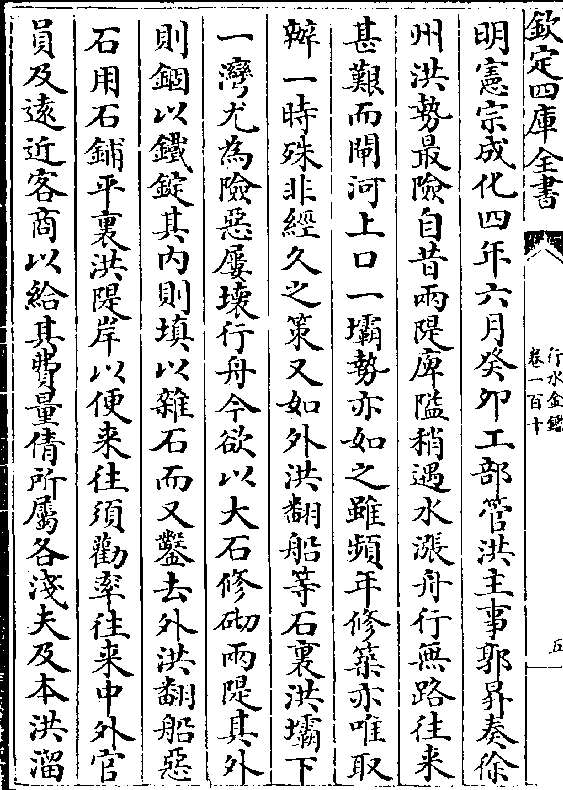 欽定四庫全書
行水金鑑
卷一百十
五
明憲宗成化四年六月癸卯工部管洪主事郭昇奏徐
州洪勢最險自昔兩隄庳隘稍遇水漲舟行無路往來
甚艱而閘河上口一壩勢亦如之雖頻年修築亦唯取
辦一時殊非經久之策又如外洪翻船等石裏洪壩下
一灣尤為險惡屢壊行舟今欲以大石修砌兩隄其外
則錮以鐵錠其内則填以雜石而又鑿去外洪翻船惡
石用石鋪平裏洪隄岸以便来往須勸率往来中外官
員及遠近客商以給其費量倩所屬各淺夫及本洪溜